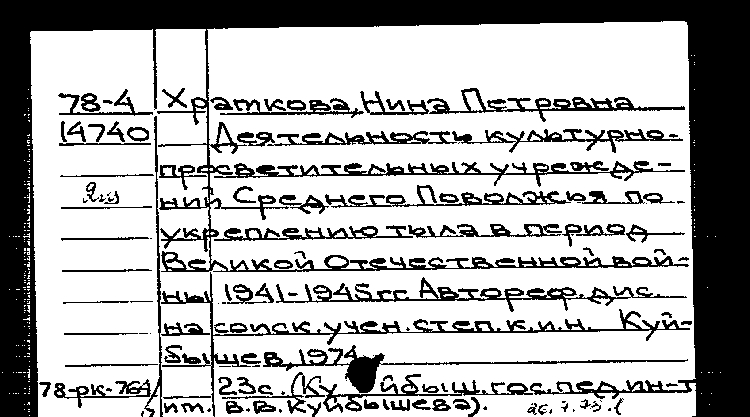 78-4 Храткова, Нина Петровна
14740 Деятельность культурно-
просветительных учрежде-
ний Среднего Поволжья по
укреплению тыла в период
Великой Отечественной вой-
ны 1941-1945гг. Автореф. дис.
на соиск. учен. степ. к. и. н. Куй-
бышев, 1974
78-рк-764/ 23с. (Куйбыш. гос. пед ин-т
им. В.В. Куйбышева).